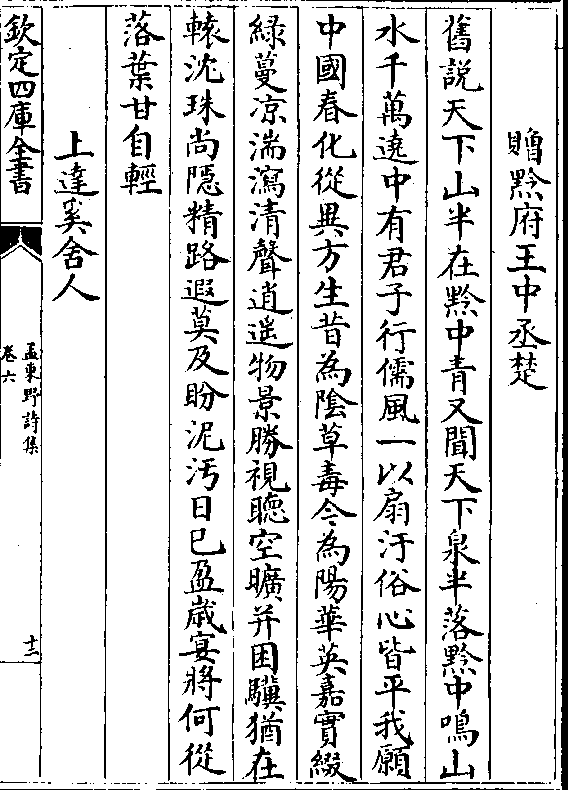 贈黔府王中丞楚
舊說天下山半在黔中青又聞天下泉半落黔中鳴山
水千萬遶中有君子行儒風一以扇汙俗心皆平我願
中國春化從異方生昔為陰草毒今為陽華英嘉實綴
綠蔓凉湍瀉清聲逍遥物景勝視聽空曠并困驥猶在
轅沈珠尚隠精路遐莫及盼泥汚日已盈嵗宴將何從
落葉甘自輕
上達奚舍人
欽定四庫全書
孟東野詩集
卷六
十二